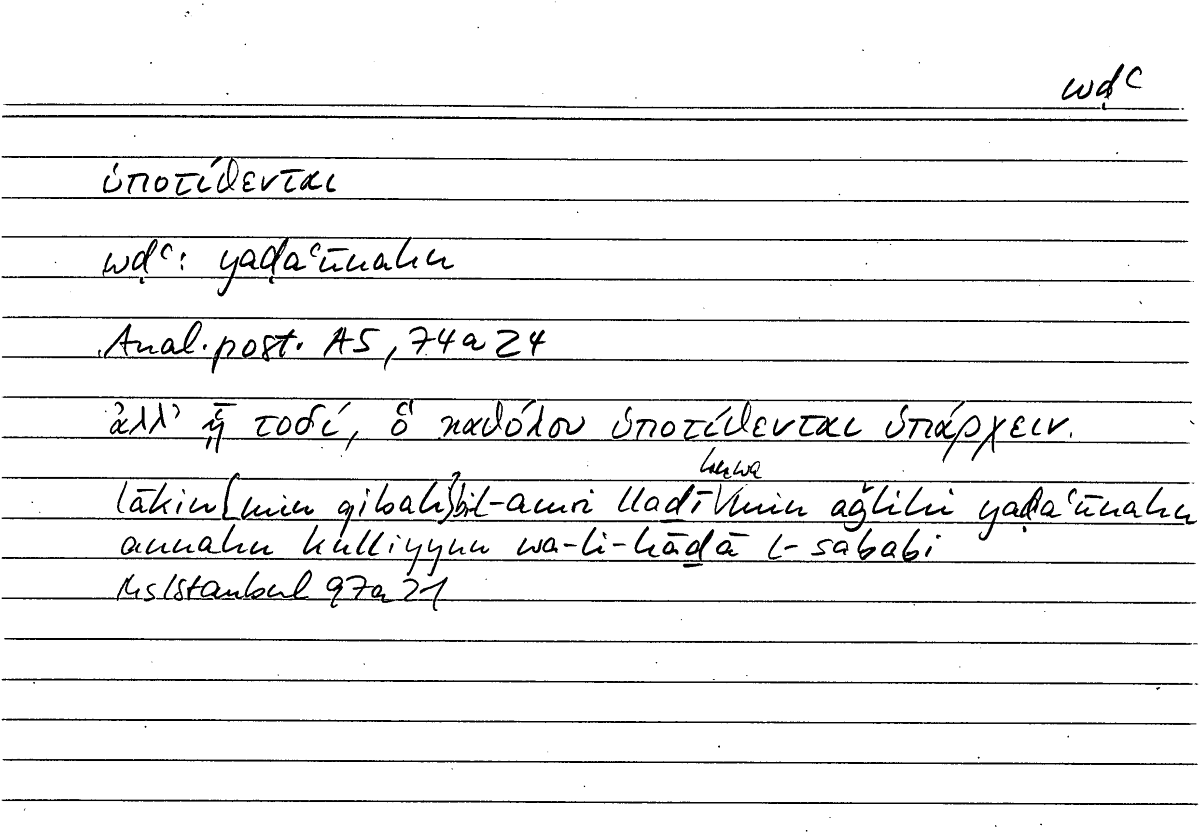 wḍʿ
ὑποτίθενται
wḍʿ: yaḍaʿūnahu
Anal. post. A5, 74a24
ἀλλ᾽ ᾗ τοδί, ὃ καθόλου ὑποτίθενται ὑπάρχειν.
huwa
lākin [min qibali] bil-amri lladī min ağlihi yaḍaʿūnahu
annahu kulliyyun wa-li-hāḏā l-sababi
Ms Istanbul 97a21